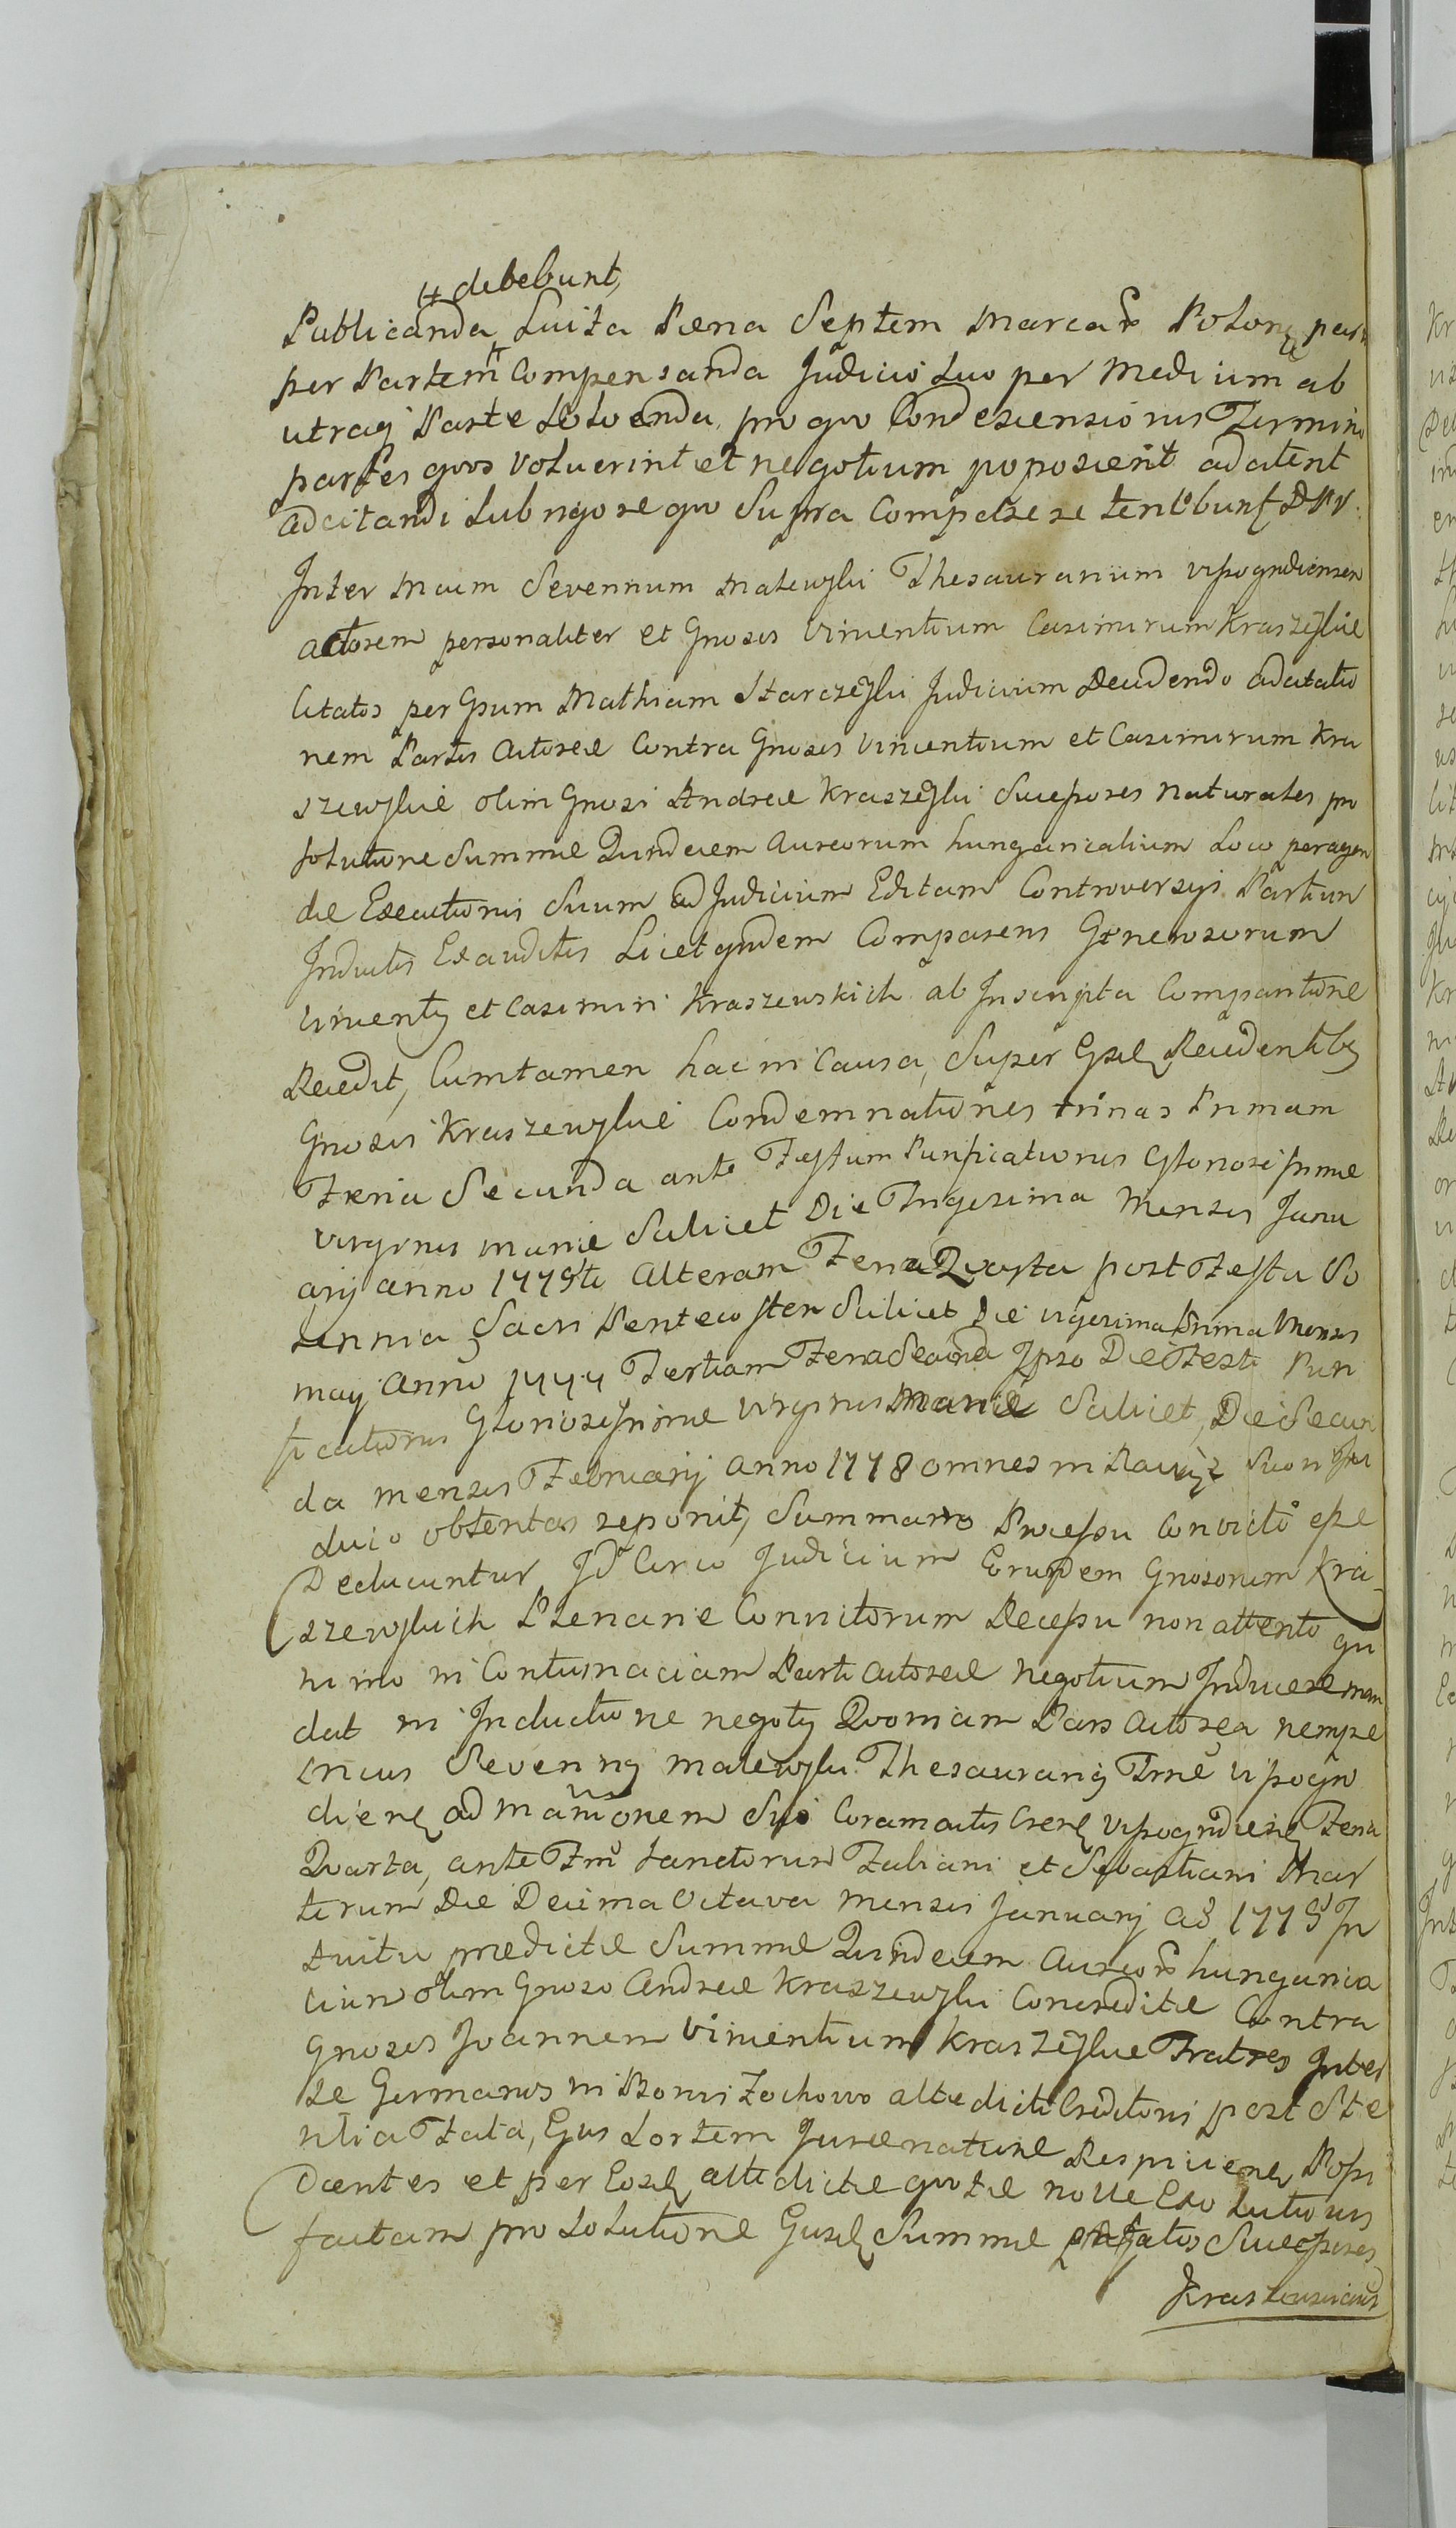 # debebunt,
Publicanda, Luita Pæna Septem Marcar Polon part
per Partem # Compensanda Judicio Luo per Medium ab
utraq Parte Solvenda, pro quo Condescensionis Termino
partes quos Voluerint et negotium poposcerit adcitent
adcitandi sub rigore quo Supra Comparere tenebunt D P V.
Inter Mcum Severinum Malewski Thesaurarium Vissogrudiensem
actorem personaliter et Gnosos Vincentium Casimirum Kraszewskie
Citatos per Gsum Mathiam Starczewski Judicium Decidendo adcitatio
nem Partis Actoreæ Contra Gnosos Vincentium et Casimirum Kra
szewskie olim Gnosi Andreæ Kraszewski Successores naturales pro
solutione Summæ Quindecem Aureorum hungaricalium Loco peragen
dæ Executionis Suum ad Judicium Editam Controversys Partium
Inductis Exauditis Licet quidem Comparens Generosorum
Vincenty et Casimiri Kraszewskich ab Inscripta Comparitione
Recedit, Cumtamen hac in Causa, Super Gsd Recedentibg
Gnosis Kraszewskie Condemnationes trinas Primam
Feria Secunda ante Festum Purificationis Gloriosissimæ
Virginis Mariæ Scilicet Die Trigesima Mensis Janu
arij anno 1775te Alteram Feria Quarta post Festa So
lennia Sacri Pentecosten Scilicet Die vigesima Prima Mensis
may Anno 1777 Tertiam Feria Secunda Ipso Die Festi Puri
ficationis Gloriosissimæ Virginis Mariæ Scilicet, Die Secun
da mensis February anno 1778 omnes in Suo Ju
dicio obtentas reponit, Summario Processu Convicti esse
Deducuntur Id Circo Judicium Eorundem Gnosorum Kra-
szewskich Plenarie Convictorum Recessu non attento qui
nimo in Contumaciam Parti Actoreæ negotium Inducere man
dat in Inductione negoty Quoniam Pars Actorea nempe
Mcus Severing Malewski Thesaurarig Træ Vissogru
dien ad Manonem Sui Coramactis Cren Vissogrudien Feria
Quarta, ante Ftm Sanctorum Fabiani et Sebastiani Mar
tirum Die Decima Octava Mensis January ao 1775 In
tuitu prædictæ Summæ Quindecem Aureor hungarica
lium olim Gnoso Andreæ Kraszewski Concreditæ Contra
Gnosos Joannem Vincentium Kraszewskie Fratres Inter
se Germanos in Bonis Zochowo altedicti Creditoris post Ste
rilia Fata, Ejus Sortem Jure naturæ Respicien Possi
dentes et per Eosd altedictæ quotæ nolle Exolutionis
factam pro Solutione Ejusd Summæ præfatos Successores
Kraszewscians